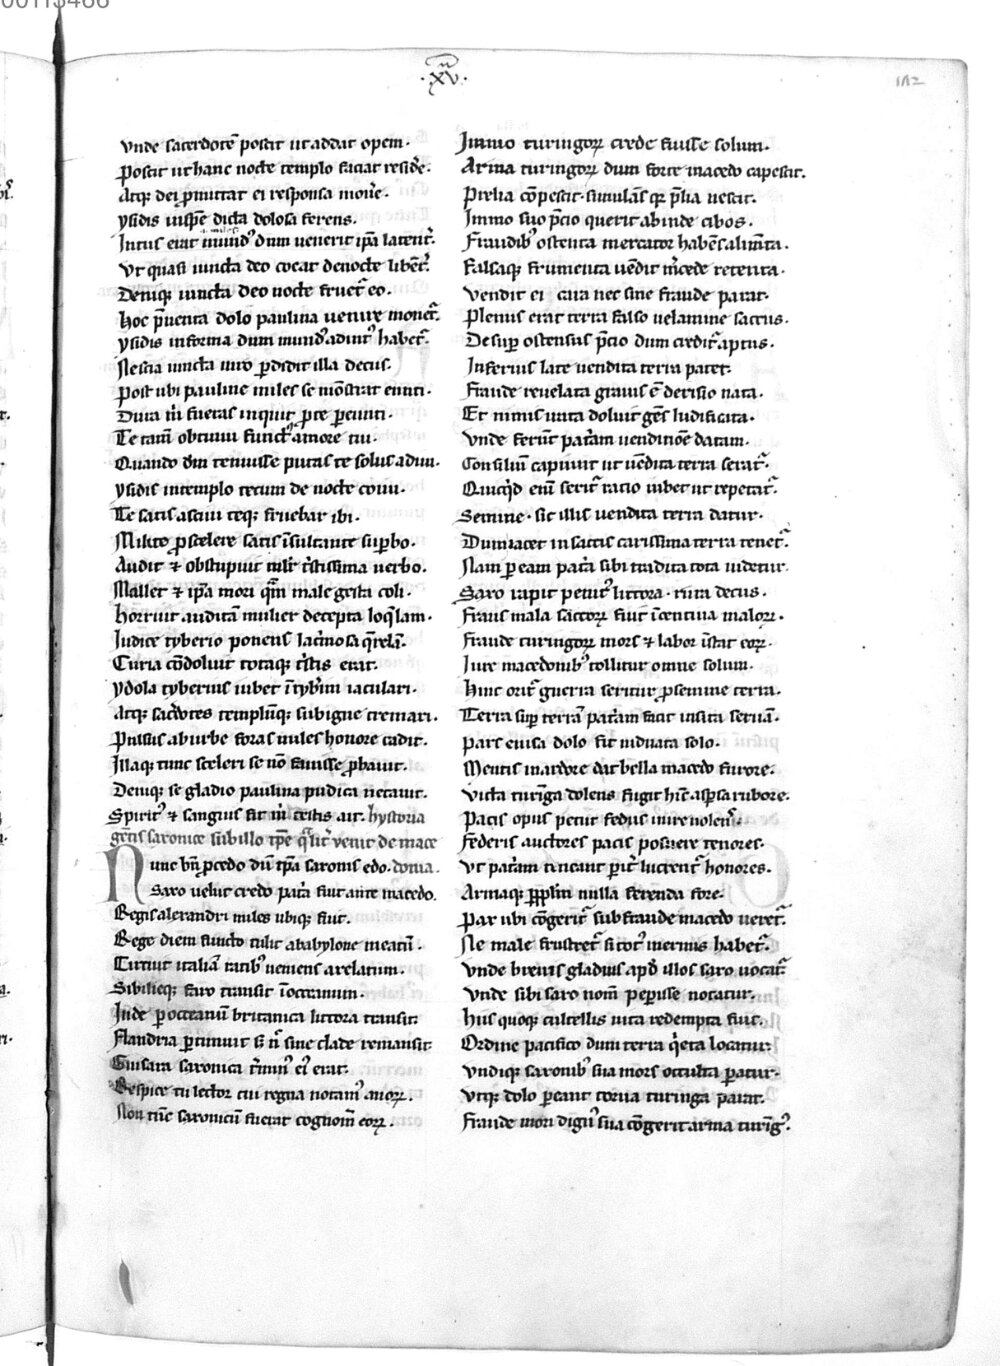 00113466
·xv·
182
Vnde sacerdotē poscit ut addat opem·
Poscit ut hanc nocte templo faciat residē·
Atq; dei ꝓmittat ei responsa monē·
Ysidis iussę dicta dolosa ferens·
Intus erat mundꝰ dum uenerit ip̄a latent̄·
Vt quasi iuncta deo coeat de nocte libent̄·
Deniq; iuncta deo nocte fruet̄ eo·
Hoc p̄uenta dolo paulina uenire monet̄·
Ysidis in forma dum mundꝰ adint habet̄·
Nescia iuncta uiro ꝑdidit illa decus·
Post ubi pauline miles se mōstrat eunti·
Diua m̄ fueras inquit ꝓ te ꝑeunti·
Te tam̄ obtinui functꝰ amore tui·
Quando dm̄ tenuisse putas te solus adiui·
Ysidis in templo tecum de nocte coiui·
Te satis asciui teq; fruebar ibi·
Milite ꝓ scelere satis īsultante suꝑbo·
Audit & obstupuit mlr̄ tristissima uerbo·
Mallet & ip̄a mori qm̄ male gesta coli·
Horruit auditā mulier decepta loq̄lam·
Iudice tyberio ponens lacrīosa q̄relā·
Curia cōdoluit totaq; tristis erat·
Ydola tyberius iubet ī tybrim iaculari·
Atq; sac̄dotes templūq; sub igne cremari·
Pulsus ab urbe foras miles honore cadit·
Illaq; tunc sceleri se nō fauisse ꝓbauit·
Deniq; se gladio paulina pudica necauit·
Spiritꝰ & sanguis sit m̄ testis ait· hystoria
gētis saxonice sub illo tp̄e qͣlit̄ venit de mace
Nunc bn̄ ꝓcedo dū tp̄a saxonis edo· donia·
Saxo uelut credo pat̄a fuit ante macedo·
Regis alexandri miles ubiq; fuit·
Rege diem functo tulit a babylone meatū·
Circuit italiā ratibꝰ ueniens arelatum·
Sibilieq; faro transit ī occeanum·
Inde ꝑ occeanū britanica littora transit·
Flandria ꝑtimuit s; n̄ sine clade remansit·
Guisara saxonica tīmnꝰ eiꝰ erat·
Respice tu lector cui regna notamꝰ auoꝝ·
Non tūc saxonicū fuerat cognom̄ eoꝝ·
Immo turingoꝝ crede fuisse solum·
Arma turingoꝝ dum forte macedo capescit·
Prelia cōpescit· simulās qꝫ p̄lia nescit·
Immo suo p̄cio querit abinde cibos·
Fraudibꝰ ostenta mercator habēs alim̄ta·
Falsaq; frumenta uēdit m̄cede retenta·
Vendit ei cuia nec sine fraude parat·
Plenus erat terra falso uelamine saccus·
Desuꝑ ostensus p̄cio dum credit̄ aptus·
Inferius late uendita terra patet·
Fraude reuelata grauis ē derisio nata·
Et nimis irata doluit gēs ludificata·
Vnde ferūt pat̄am uenditiōe datam·
Consilium capiunt ut uēdita terra serat̄·
Quicq̄d enī serit̄ ratio iubet ut repetat̄·
Semine· sic illis uendita terra datur·
Dum iacet in saccis carissima terra tenet̄·
Nam ꝑ eam pat̄a sibi tradita tota uidetur·
Saxo rapit petit littora· ruta decus·
Fraus mala saccoꝝ fuit īcentiua maloꝝ·
Fraude turingoꝝ mors & labor īstat eoꝝ·
Iure macedonibꝰ tollitur omne solum·
Hinc orit̄ guerra seritur ꝓ semine terra·
Terra suꝑ terrā pat̄am facit insita seruā·
Pars enisa dolo fit uiduata solo·
Mentis in ardore dat bella macedo furore·
Victa turīga dolens fugit hīc asꝑsa rubore·
Pacis opus petit fedus inire uolens·
Federis auctores pacis posuere tenores·
Vt pat̄am teneant ꝑit̄ lucrent̄ honores·
Armaq; ꝑpl̄m nulla ferenda fore·
Pax ubi cōgerit̄ sub fraude macedo ueret̄·
Ne male frustret̄ si totꝰ inermis habet̄·
Vnde breuis gladius apd̄ illos saxo uocat̄·
Vnde sibi saxo nom̄ peꝑisse notatur·
Hiis quoq; cultellis uita redempta fuit·
Ordine pacifico dum terra q̄eta locatur·
Vndiq; saxonibꝰ sua mors occulta ꝑatur·
Vtq; dolo ꝑeant torua turinga parat·
Fraude mori dignꝰ sua cōgerit arma turīgꝰ·